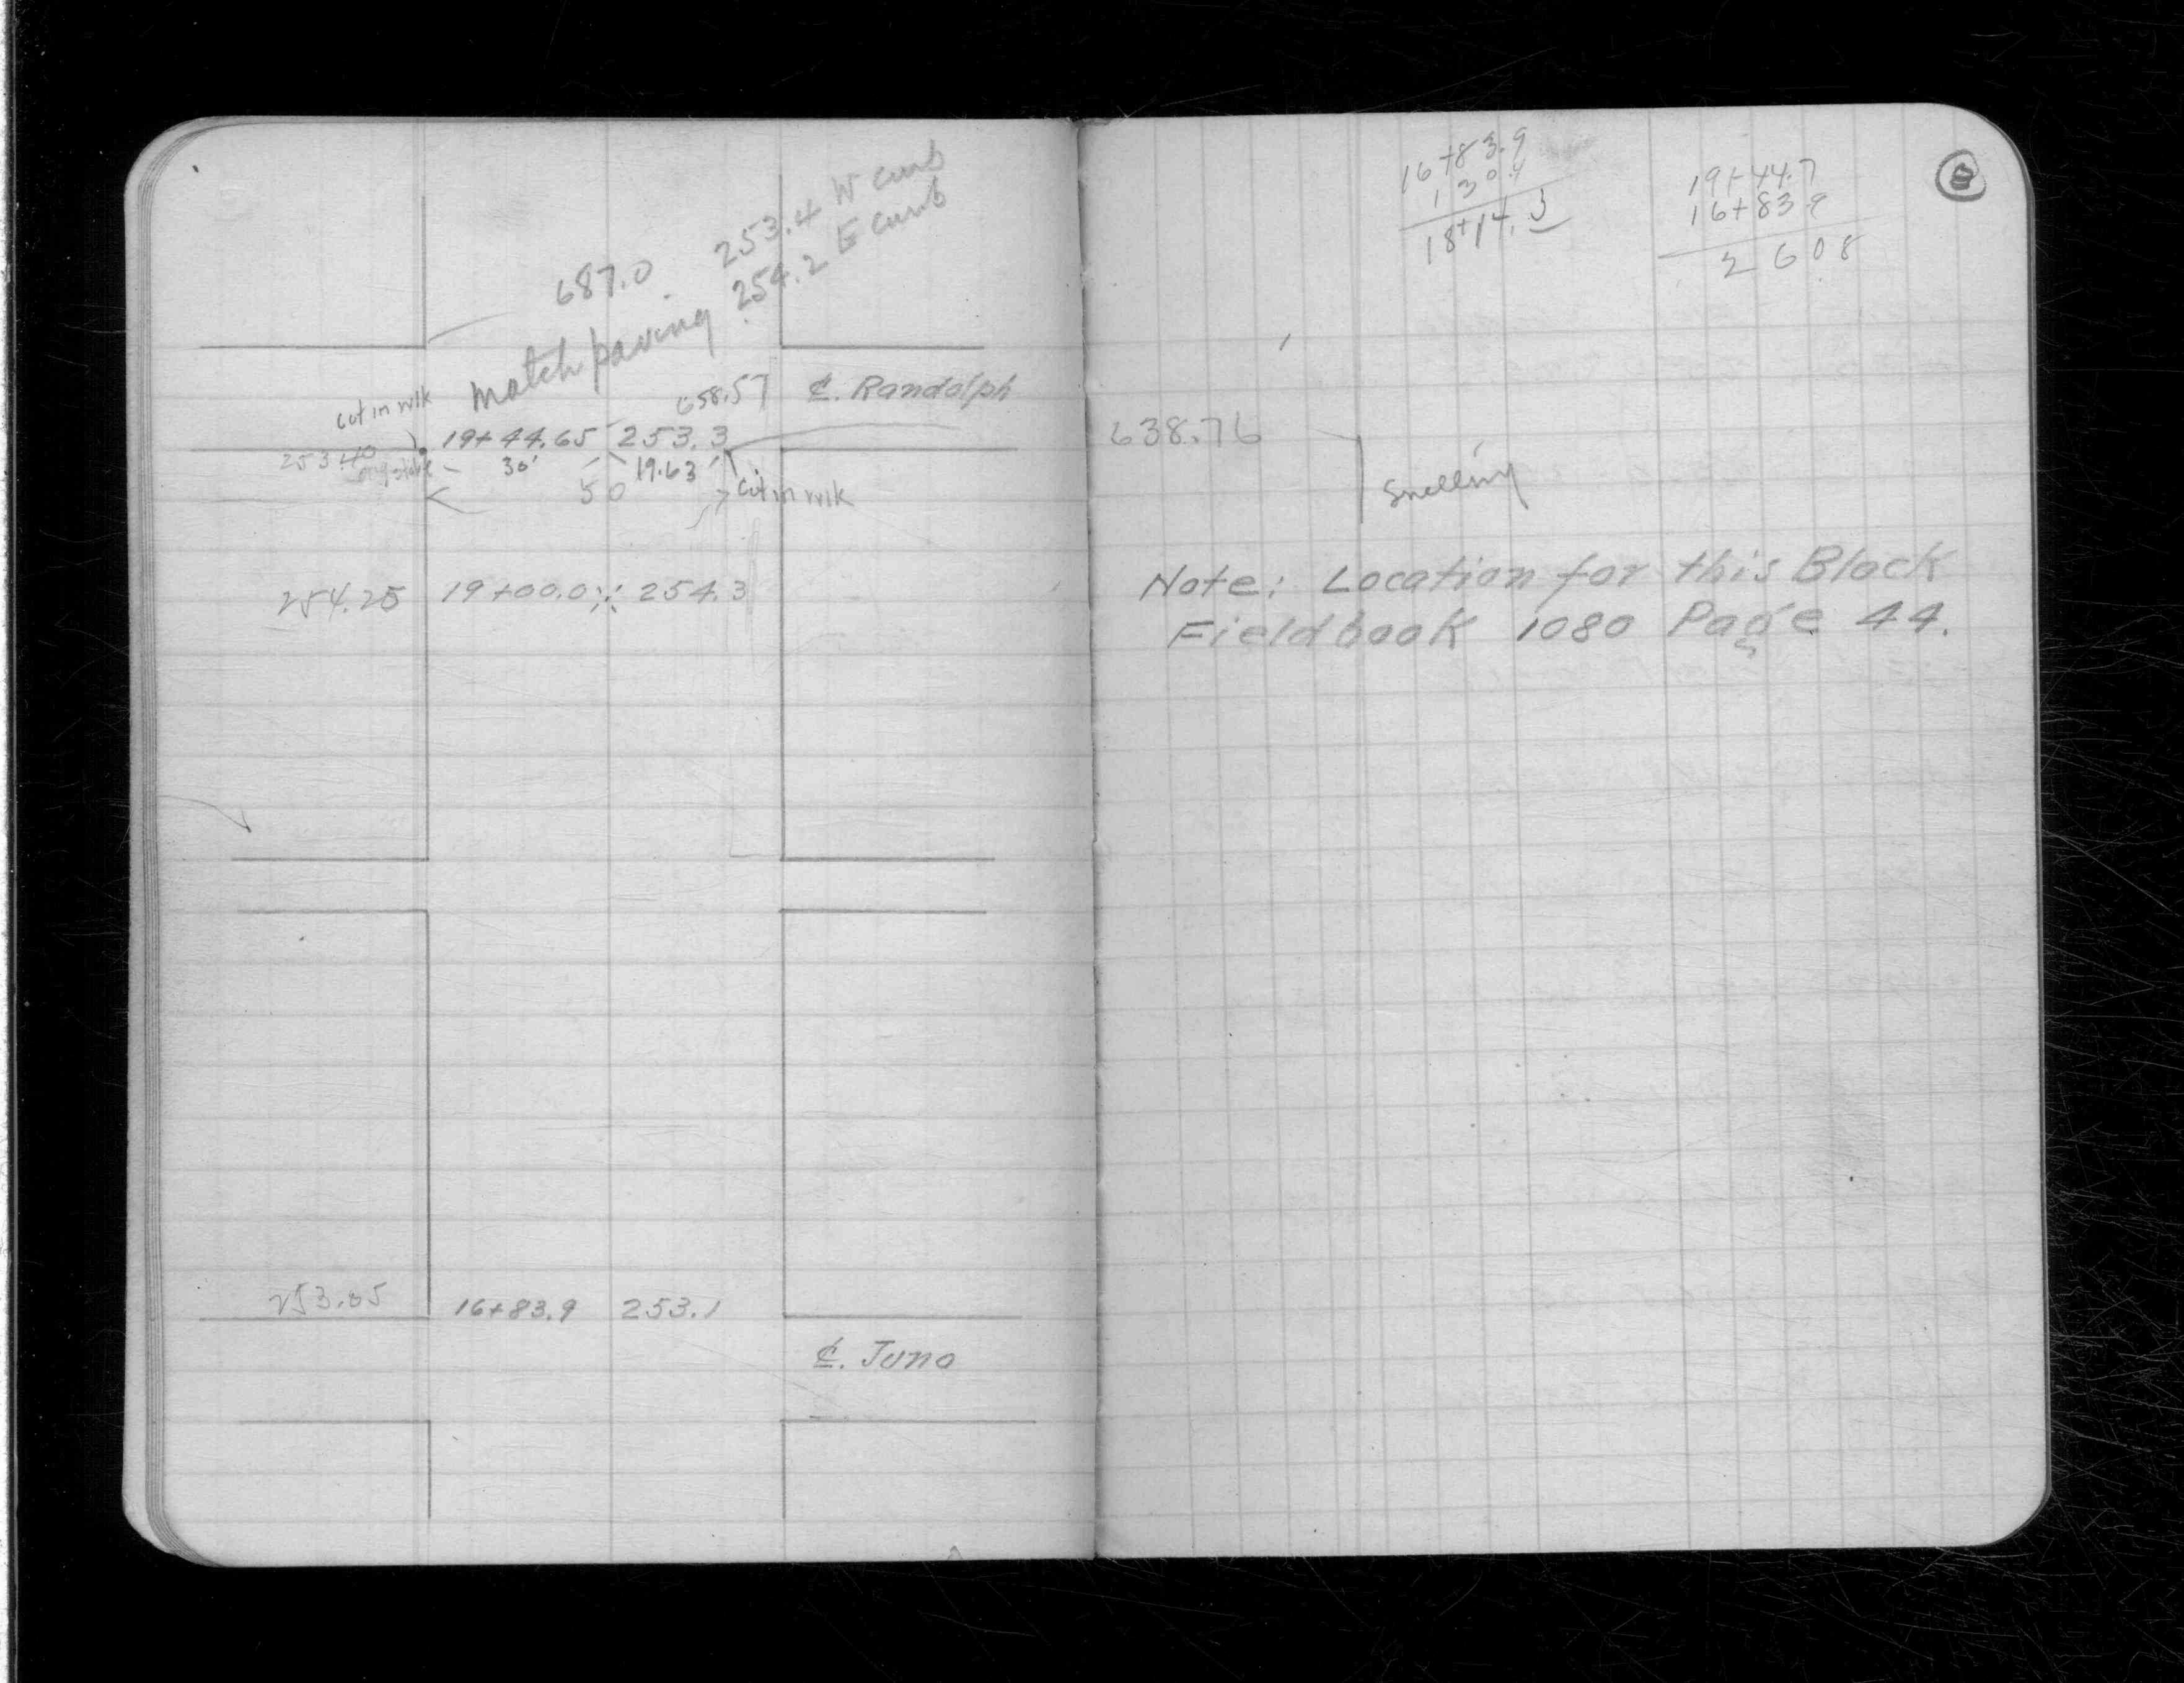 253.4 W curb
687.0
Match paving 254.2 E curb
658.57 ₵. Randolph
cut in wlk
19+44.65 253.3
253.40
30' 19.63'
50 cut in wlk
254.25 19+00.0 254.3
253.05 16+83.9 253.1
₵. Juno
16+83.9
130.4
18+14.3
19+44.7
16+83.9
2 60.8
638.76
Snelling
Note: Location for this Block
Fieldbook 1080 Page 44.